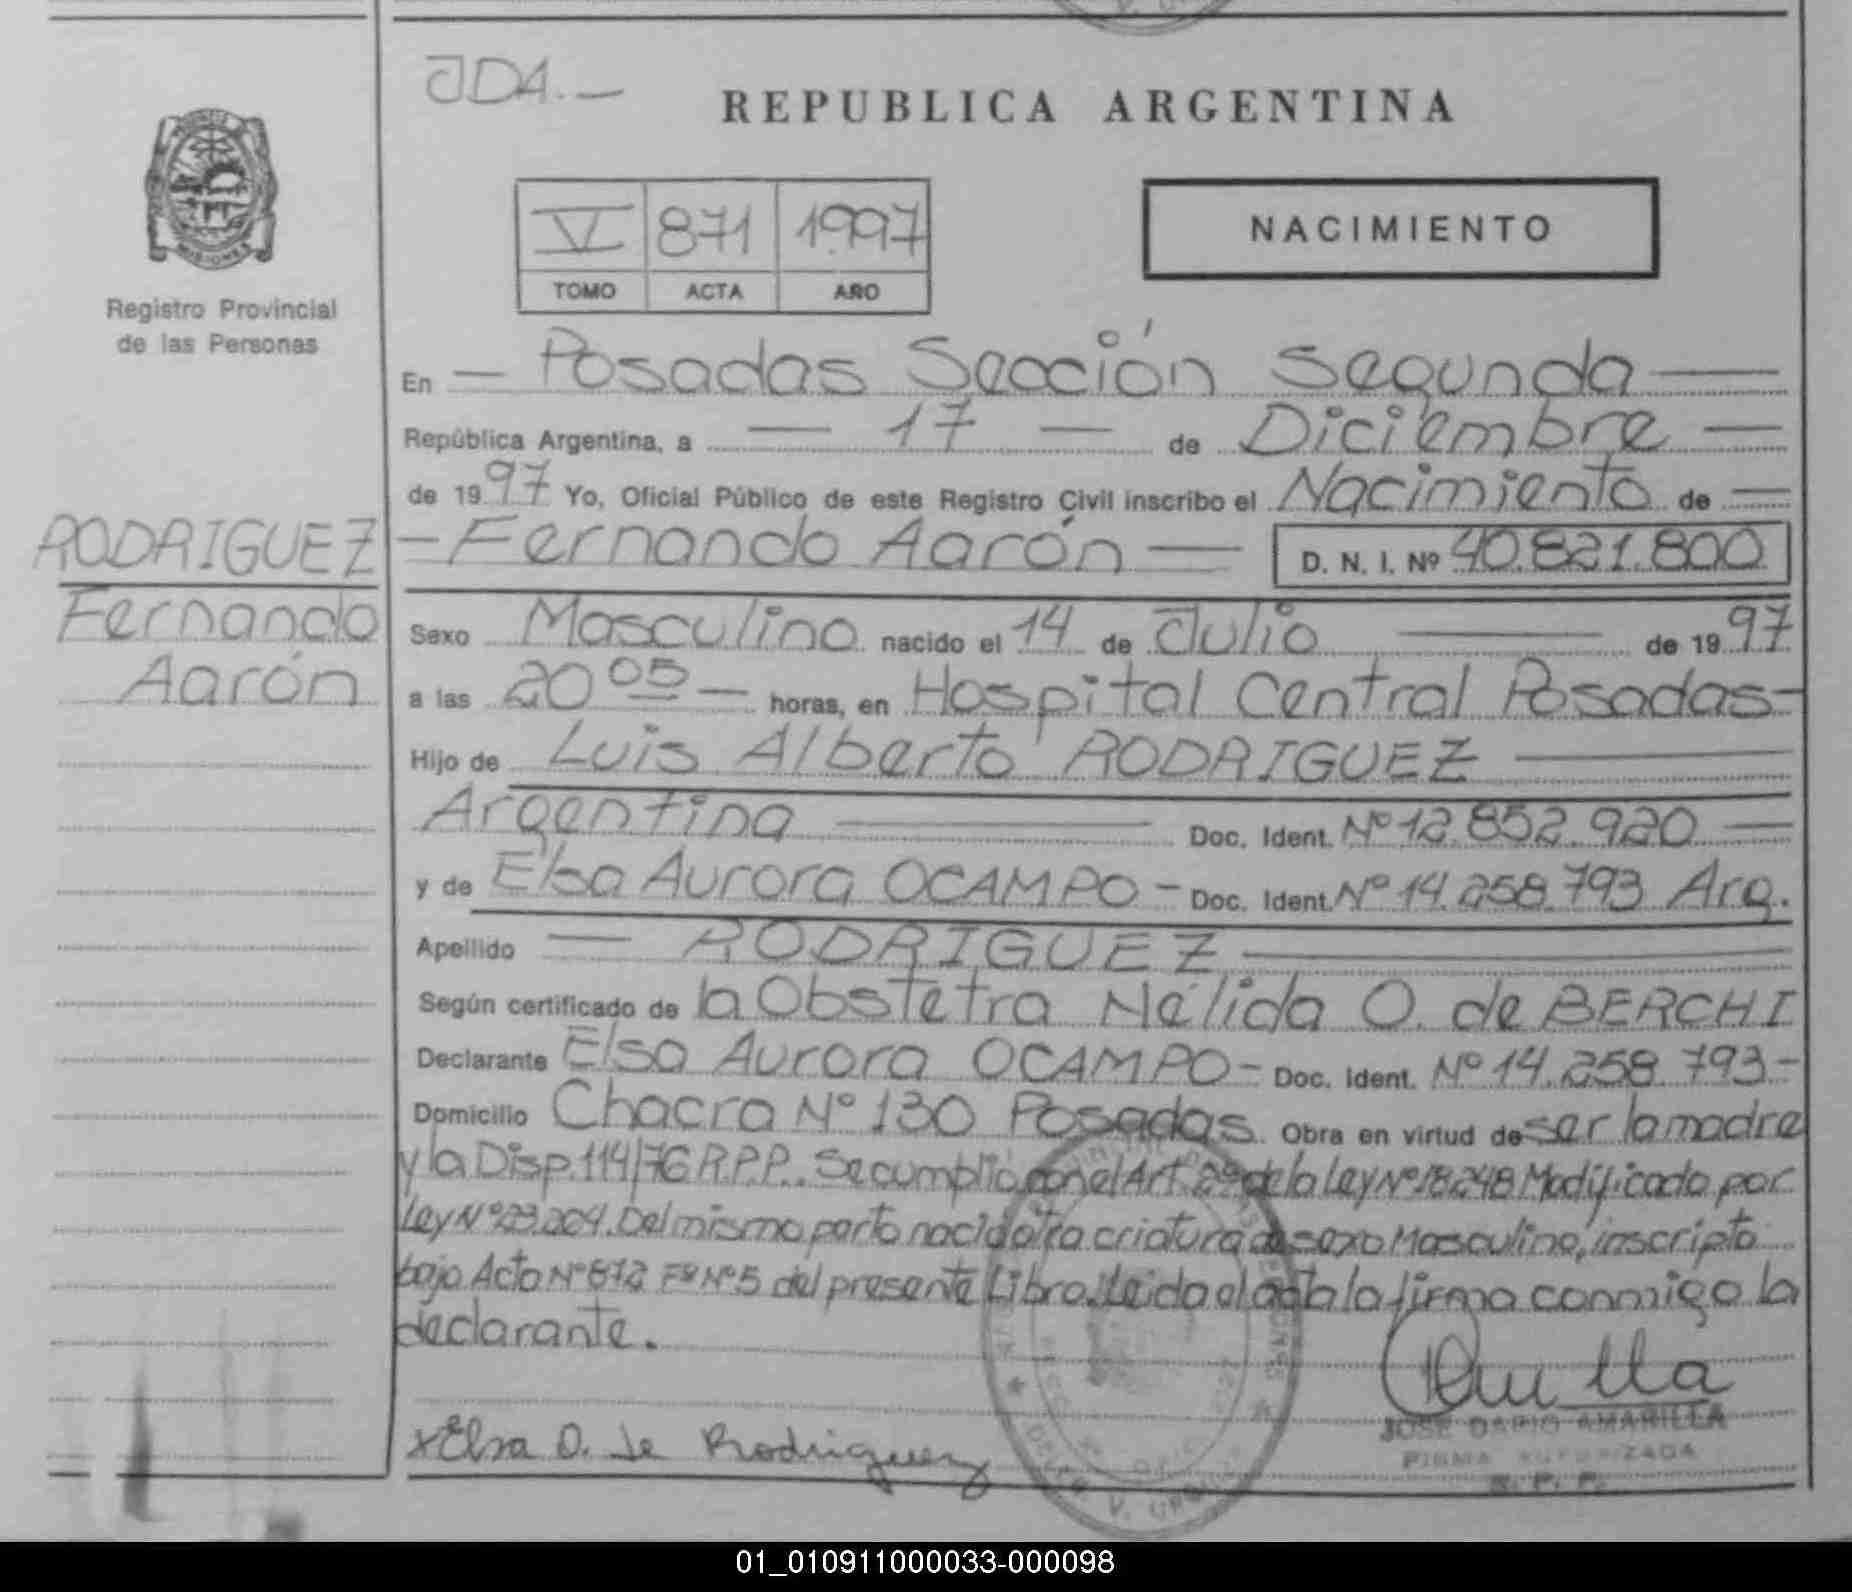 JDA.—
REPUBLICA ARGENTINA
MISIONES
Registro Provincial
de las Personas
V 871 1997
TOMO ACTA AÑO
NACIMIENTO
En — Posadas Sección Segunda —
República Argentina, a — 17 — de Diciembre —
de 1997 Yo, Oficial Público de este Registro Civil inscribo el Nacimiento de —
RODRIGUEZ
Fernando
Aarón
— Fernando Aarón — D. N. I. Nº 40.821.800
Sexo Masculino nacido el 14 de Julio — de 1997
a las 20 05 — horas, en Hospital Central Posadas-
Hijo de Luis Alberto RODRIGUEZ —
Argentina — Doc. Ident. Nº 12.852.920 —
y de Elsa Aurora OCAMPO - Doc. Ident. Nº 14.258.793 Arg.
Apellido — RODRIGUEZ —
Según certificado de la Obstetra Nélida O. de BERCHI
Declarante Elsa Aurora OCAMPO - Doc. Ident. Nº 14.258.793-
Domicilio Chacra Nº 130 Posadas. Obra en virtud de ser la madre
y la Disp. 114/76 R.P.P.. Se cumplió con el Art. 2º de la Ley Nº 18.248 Modificado por
Ley Nº 23.264. Del mismo parto nació otra criatura de sexo Masculino, inscripto
bajo Acta Nº 872 Fº Nº 5 del presente Libro. Leida el acta la firma conmigo la
declarante.
x Elsa O. de Rodriguez
JOSE DARIO AMARILLA
FIRMA AUTORIZADA
R. P. P.
01_010911000033-000098